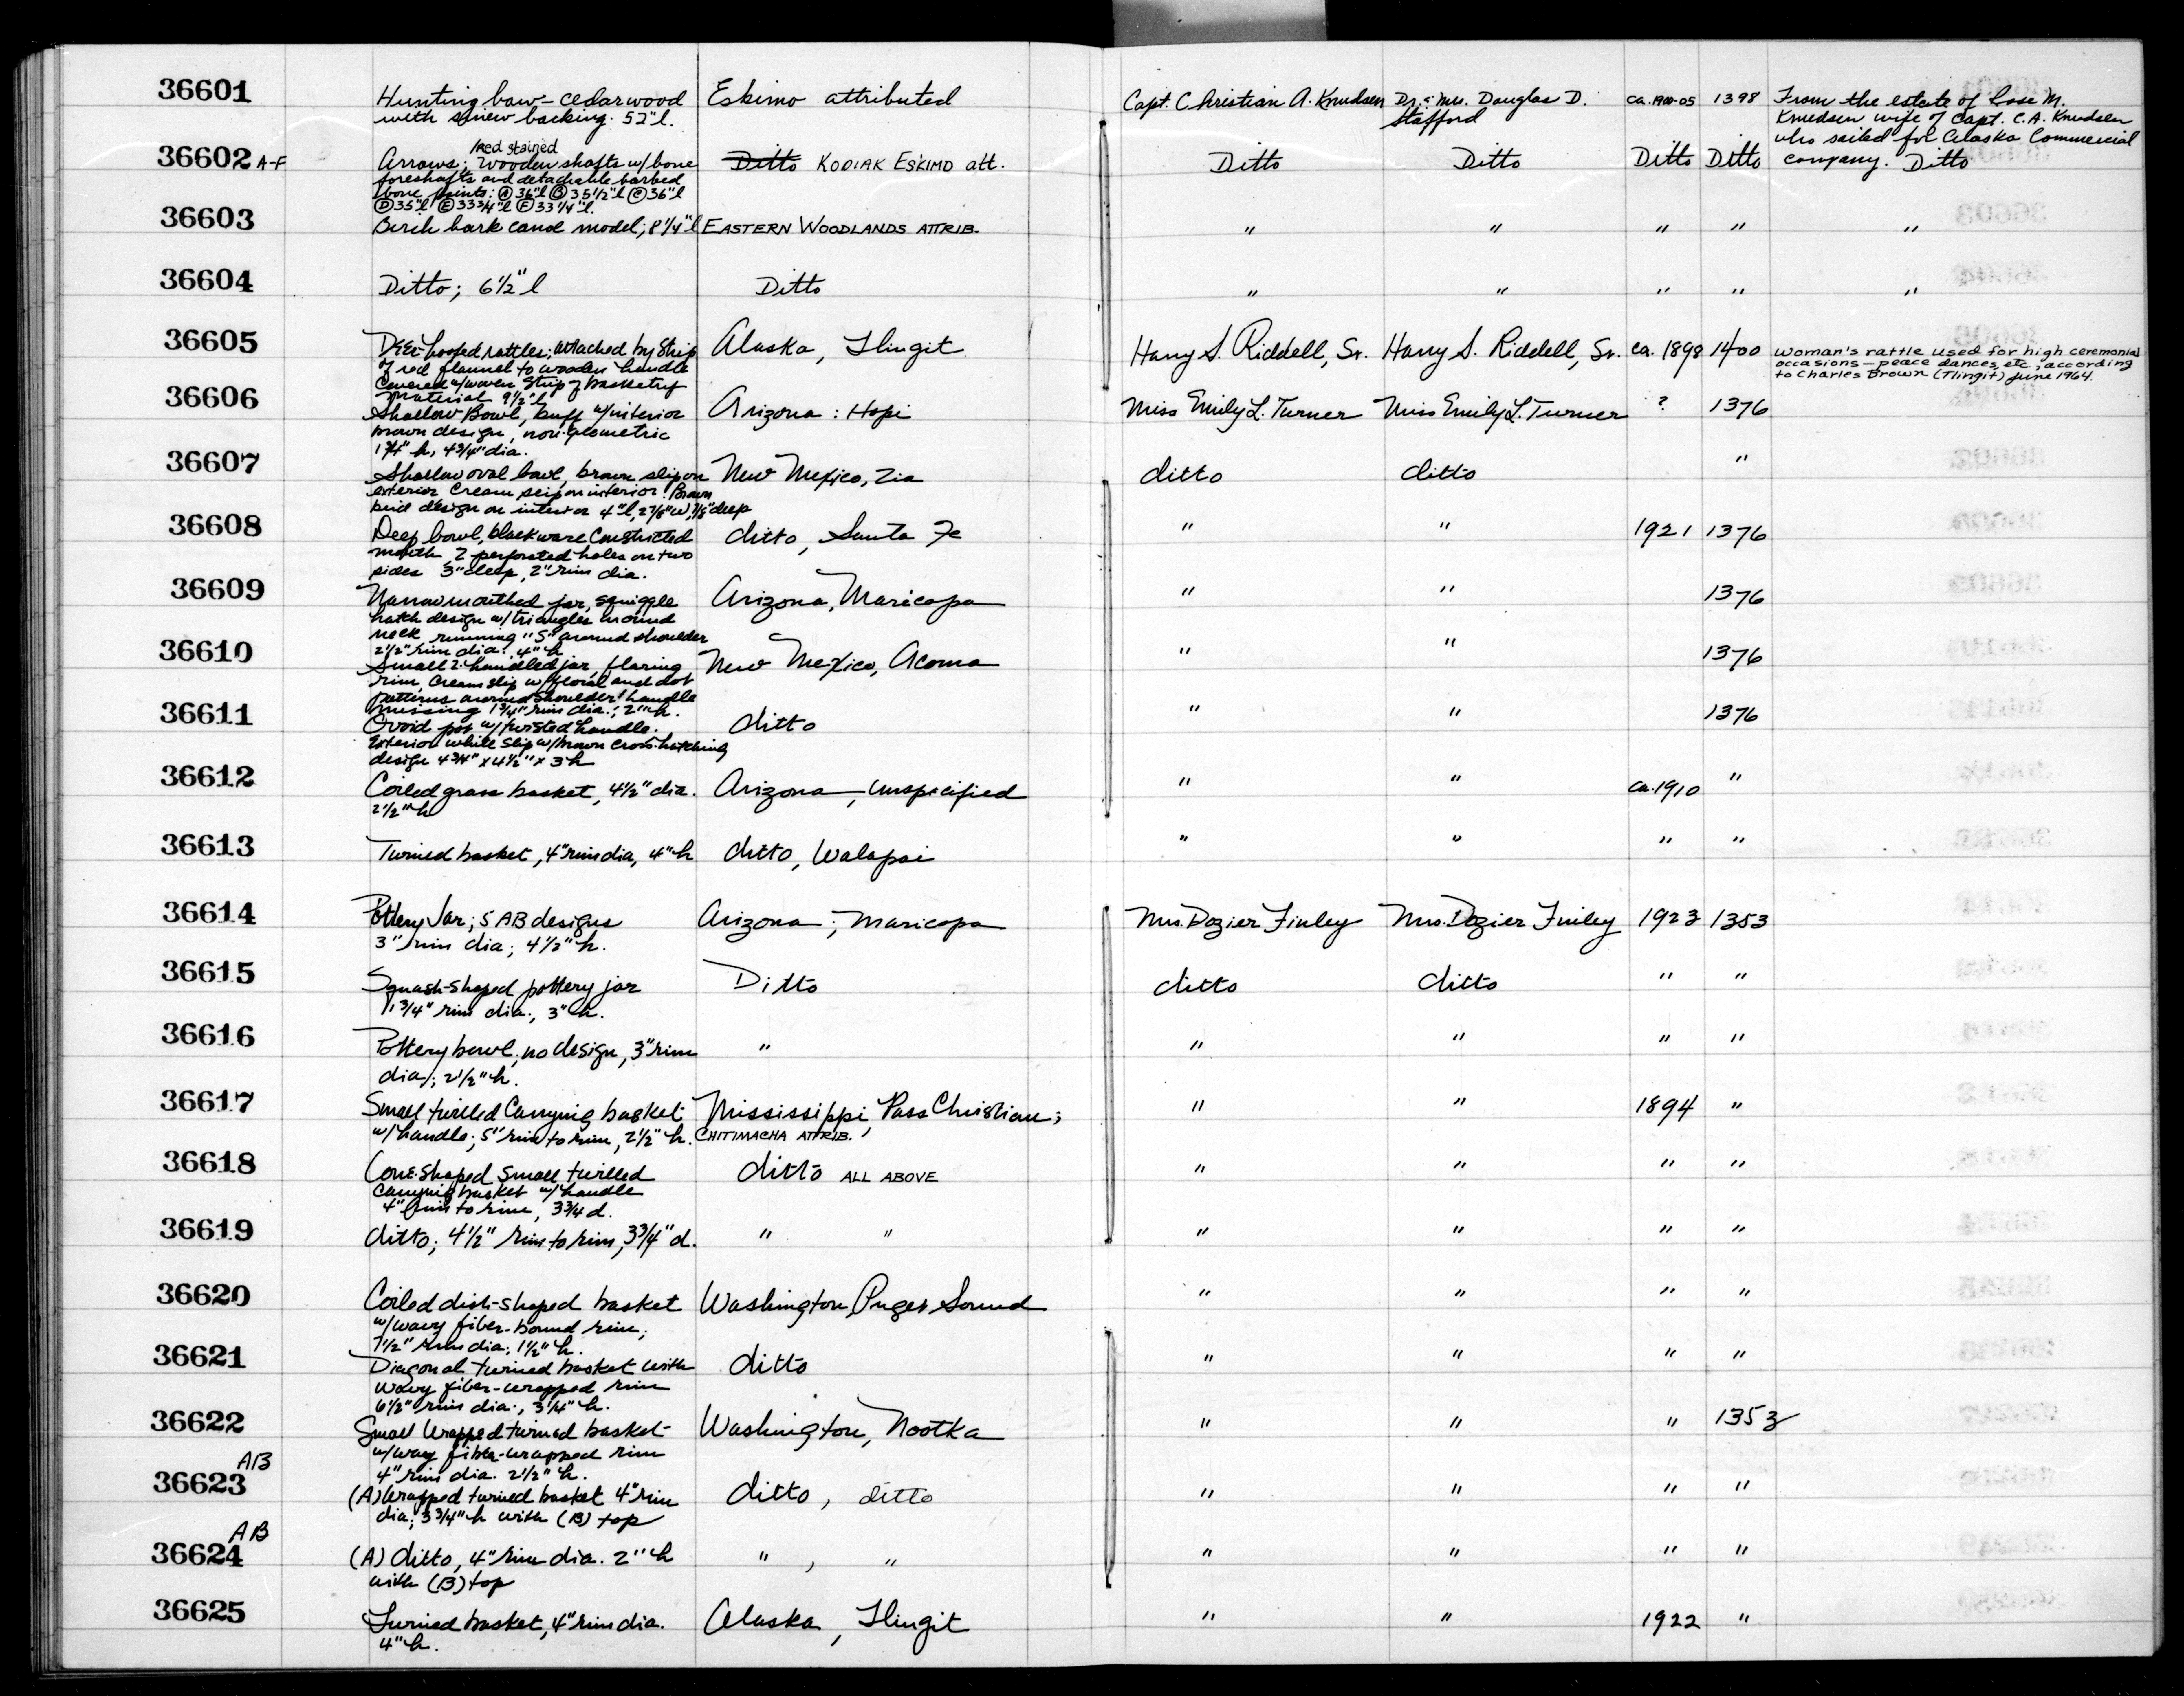 36601 Hunting bow - cedarwood Eskimo attributed Capt. Christian A. Knudsen Dr. & Mrs. Douglas D. ca. 1900-05 1398 From the estate of Rose M.
with sinew backing. 52"l. Stafford Knudsen wife of Capt. C.A. Knudsen
who sailed for Alaska Commercial
company. Ditto
red stained
36602 A-F Arrows; wooden shafts w/bone Ditto KODIAK ESKIMO att. Ditto Ditto Ditto Ditto
foreshafts and detachable barbed
bone points: Ⓐ 36"l Ⓑ 35 1/2"l Ⓒ 36"l
Ⓓ 35"l Ⓔ 33 3/4"l Ⓕ 33 1/4"l.
36603 Birch bark canoe model; 8 1/4"l EASTERN WOODLANDS ATTRIB. " " " " "
36604 Ditto; 6 1/2"l Ditto " " " " "
36605 Deer-hoofed rattles; attached by strip Alaska, Tlingit Harry S. Riddell, Sr. Harry S. Riddell, Sr. ca. 1898 1400 Woman's rattle used for high ceremonial
of red flannel to wooden handle occasions - peace dances, etc., according
covered w/woven strip of basketry to Charles Brown (Tlingit) June 1964.
material 9 1/2"l
36606 Shallow Bowl, buff w/interior Arizona: Hopi Miss Emily L. Turner Miss Emily L. Turner ? 1376
brown design, non-geometric
1 3/4" h, 4 3/4" dia.
36607 Shallow oval bowl, brown slip on New Mexico, Zia ditto ditto "
exterior Cream slip on interior. Brown
bird design on interior 4"l, 2 7/8"w, 7/8"deep
36608 Deep bowl, blackware constricted ditto, Santa Fe " " 1921 1376
mouth, 2 perforated holes on two
sides 3"deep, 2"rim dia.
36609 Narrowmouthed jar, squiggle Arizona, Maricopa " " 1376
hatch design w/triangles around
neck, running "S" around shoulder
2 1/2" rim dia., 4"h
36610 Small 2-handled jar, flaring New Mexico, Acoma " " 1376
rim, cream slip w/floral and dot
patterns around shoulder 1 handle
missing 1 3/4"rim dia.; 2"h.
36611 Ovoid pot w/twisted handle. ditto " " 1376
Exterior white slip w/brown cross-hatching
design 4 3/4" x 4 1/2" x 3"h
36612 Coiled grass basket, 4 1/2" dia. Arizona, unspecified " " ca. 1910 "
2 1/2"h
36613 Twined basket, 4"rim dia, 4"h ditto, Walapai " " " "
36614 Pottery Jar; 5 AB designs Arizona; Maricopa Mrs. Dozier Finley Mrs. Dozier Finley 1923 1353
3" rim dia; 4 1/2"h.
36615 Squash-shaped pottery jar Ditto ditto ditto " "
1 3/4" rim dia., 3"h.
36616 Pottery bowl, no design, 3"rim " " " " "
dia.; 2 1/2"h.
36617 Small twilled Carrying basket Mississippi, Pass Christian; " " 1894 "
w/handle; 5" rim to rim, 2 1/2" h. CHITIMACHA ATTRIB.
36618 Cone-shaped small twilled ditto ALL ABOVE " " " "
carrying basket w/handle
4" rim to rim, 3 3/4 d.
36619 ditto; 4 1/2" rim to rim, 3 3/4" d. " " " " " "
36620 Coiled dish-shaped basket Washington, Puget Sound " " " "
w/wavy fiber-bound rim;
7 1/2" rim dia; 1 1/2"h.
36621 Diagonal twined basket with ditto " " " "
wavy fiber-wrapped rim
6 1/2" rim dia., 3 1/4"h.
36622 Small Wrapped twined basket Washington, Nootka " " " 1353
w/wavy fiber-wrapped rim
4" rim dia. 2 1/2"h.
36623 AB (A) Wrapped twined basket 4"rim ditto, ditto " " " "
dia; 3 3/4"h with (B) top
36624 AB (A) ditto, 4"rim dia. 2"h " , " " " " "
with (B) top
36625 Twined basket, 4"rim dia. Alaska, Tlingit " " 1922 "
4"h.